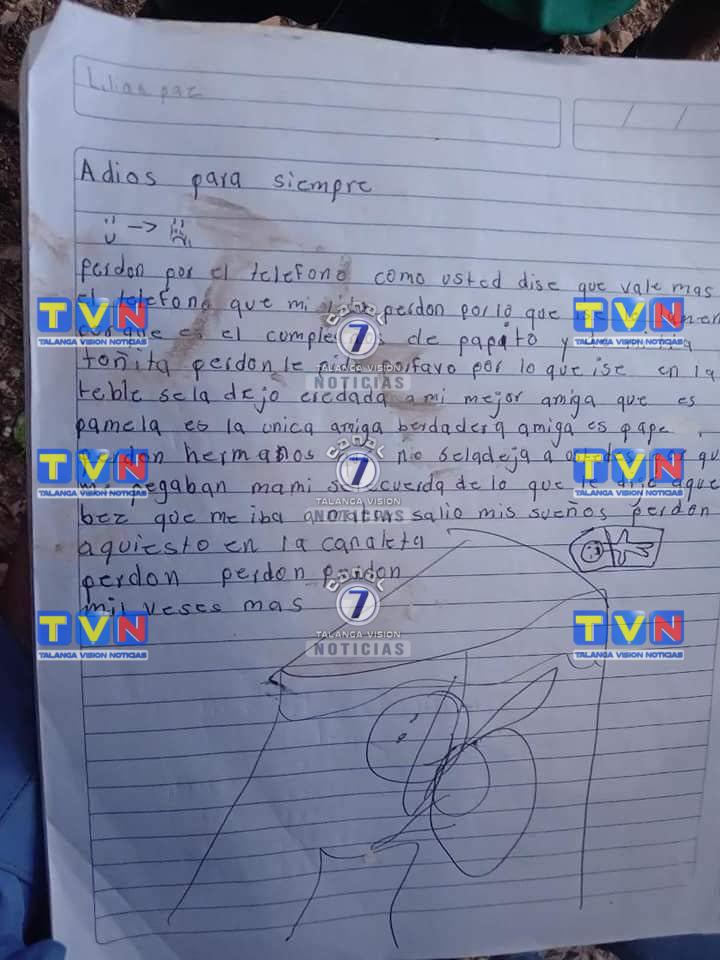 Lilian paz
Adios para siempre
perdon por el telefono como usted dise que vale mas
el telefono que mi perdon por lo que ise
TVN
TALANGA VISION NOTICIAS
canal
7
TALANGA VISION
NOTICIAS
TVN
TALANGA VISION NOTICIAS
es el cumple de papito y
toñita perdon le por lo que ise en la
teble se la dejo eredada a mi mejor amiga que es
pamela es la unica amiga berdadera amiga es pape
perdon hermanos no se la deja a ustedes por qu
TVN
TALANGA VISION NOTICIAS
canal
7
TALANGA VISION
NOTICIAS
TVN
TALANGA VISION NOTICIAS
me pegaban mami se recuerda de lo que le dije aque
bez que me iba a matar salio mis sueños perdon
aqui esto en la canaleta
perdon perdon perdon
mil veses mas
TVN
TALANGA VISION NOTICIAS
canal
7
TALANGA VISION
NOTICIAS
TVN
TALANGA VISION NOTICIAS